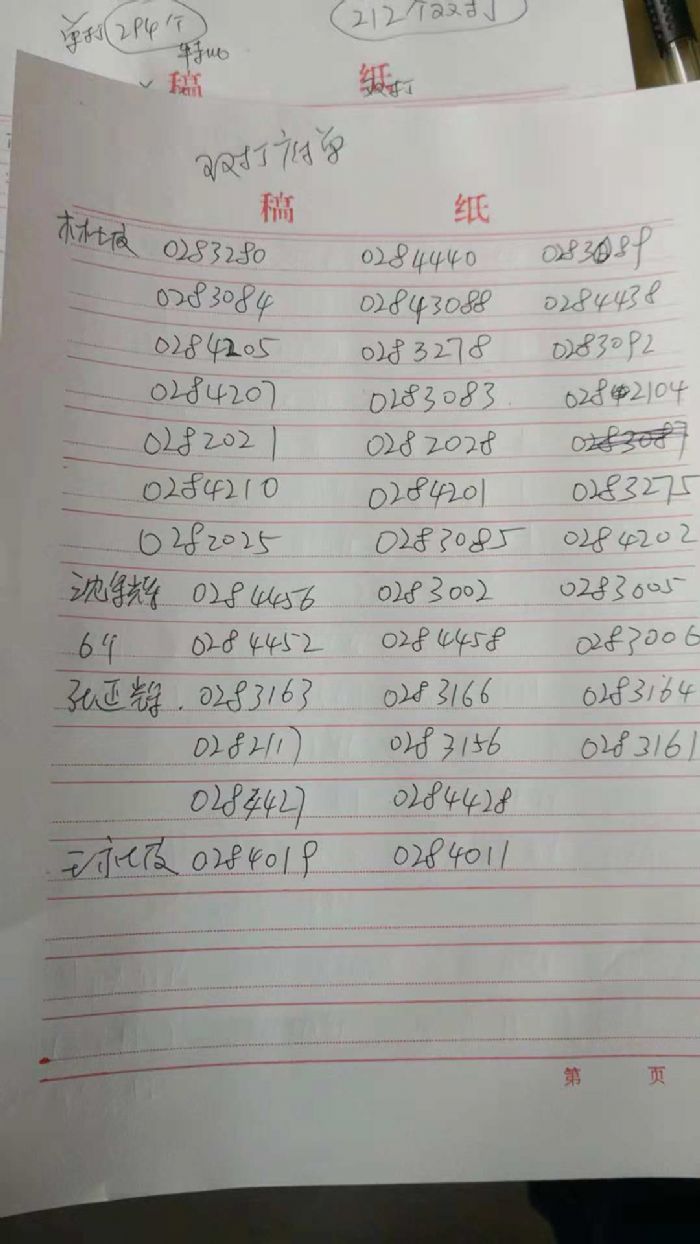 单打 294个 212个双打
稿 纸
双打
双打
稿 纸
0283280 0284440 0283089
0283084 02843088 0284438
0284205 0283278 0283092
0284207 0283083 02842104
0282021 0282028 0283087
0284210 0284201 0283275
0282025 0283085 0284202
0284456 0283002 0283005
64 0284452 0284458 0283006
孙亚辉. 0283163 0283166 0283164
0282117 0283156 0283161
0284427 0284428
0284019 0284011
第 页